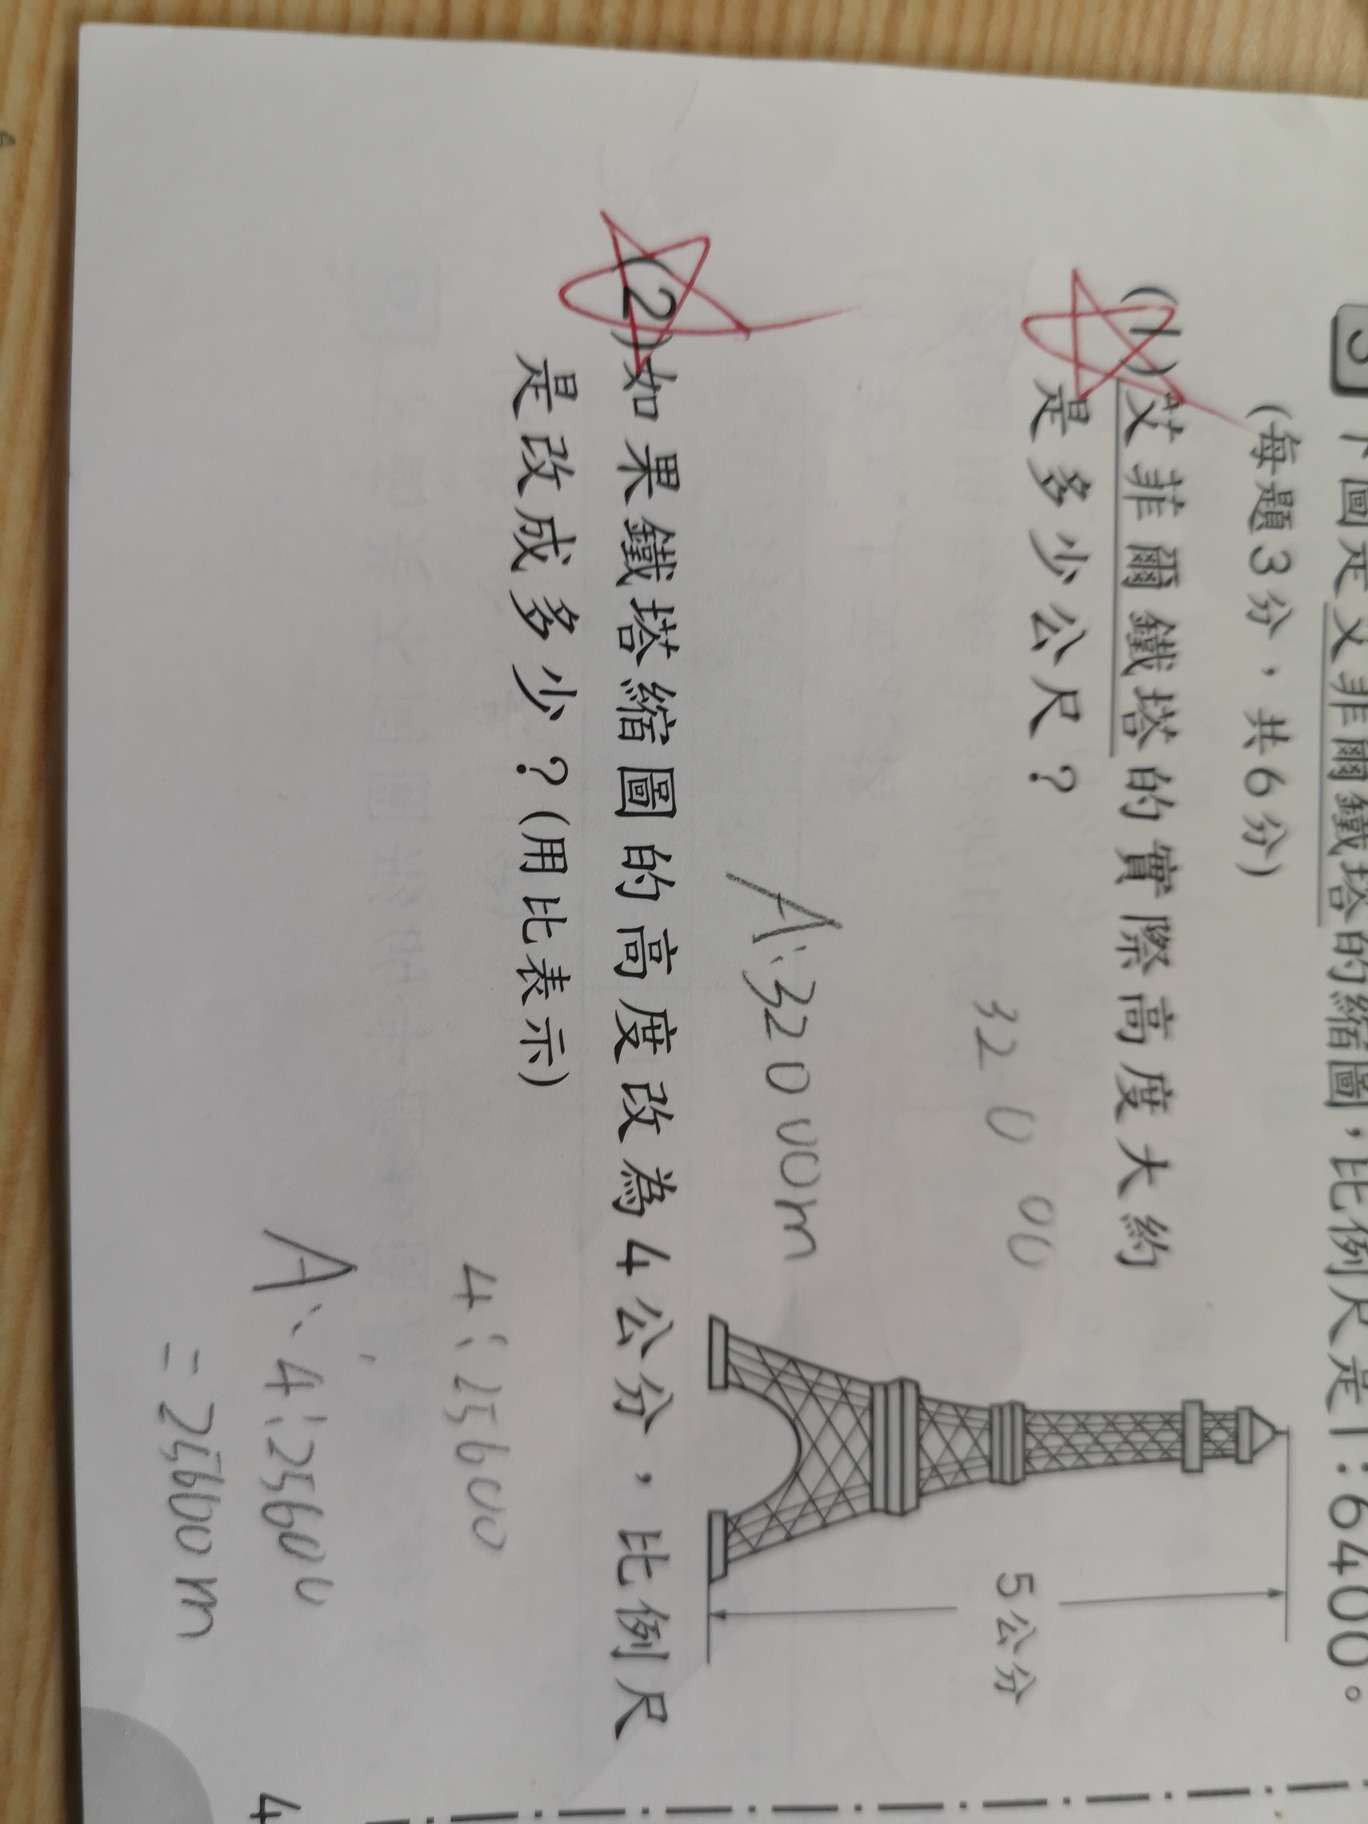 下圖是艾菲爾鐵塔的縮圖，比例尺是1：6400。
(每題3分，共6分)
(1)艾菲爾鐵塔的實際高度大約
是多少公尺？
32000
A:32000m
5公分
(2)如果鐵塔縮圖的高度改為4公分，比例尺
是改成多少？(用比表示)
4:25600
A:4:25600
=25600m
4